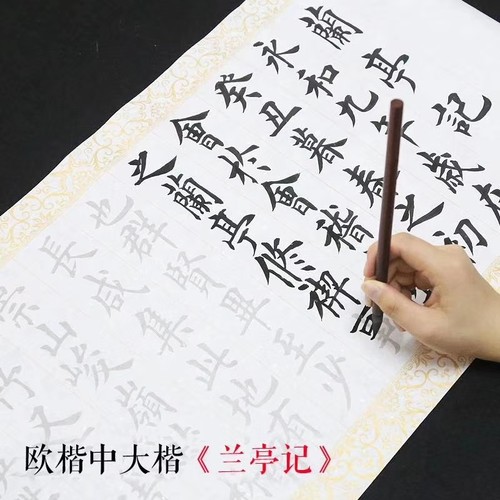 蘭亭記
永和九年歲
癸丑暮春之初
會於會稽
之蘭亭修禊
也群賢畢至少
長咸集此地有
崇山峻嶺
竹又
欧楷中大楷《兰亭记》